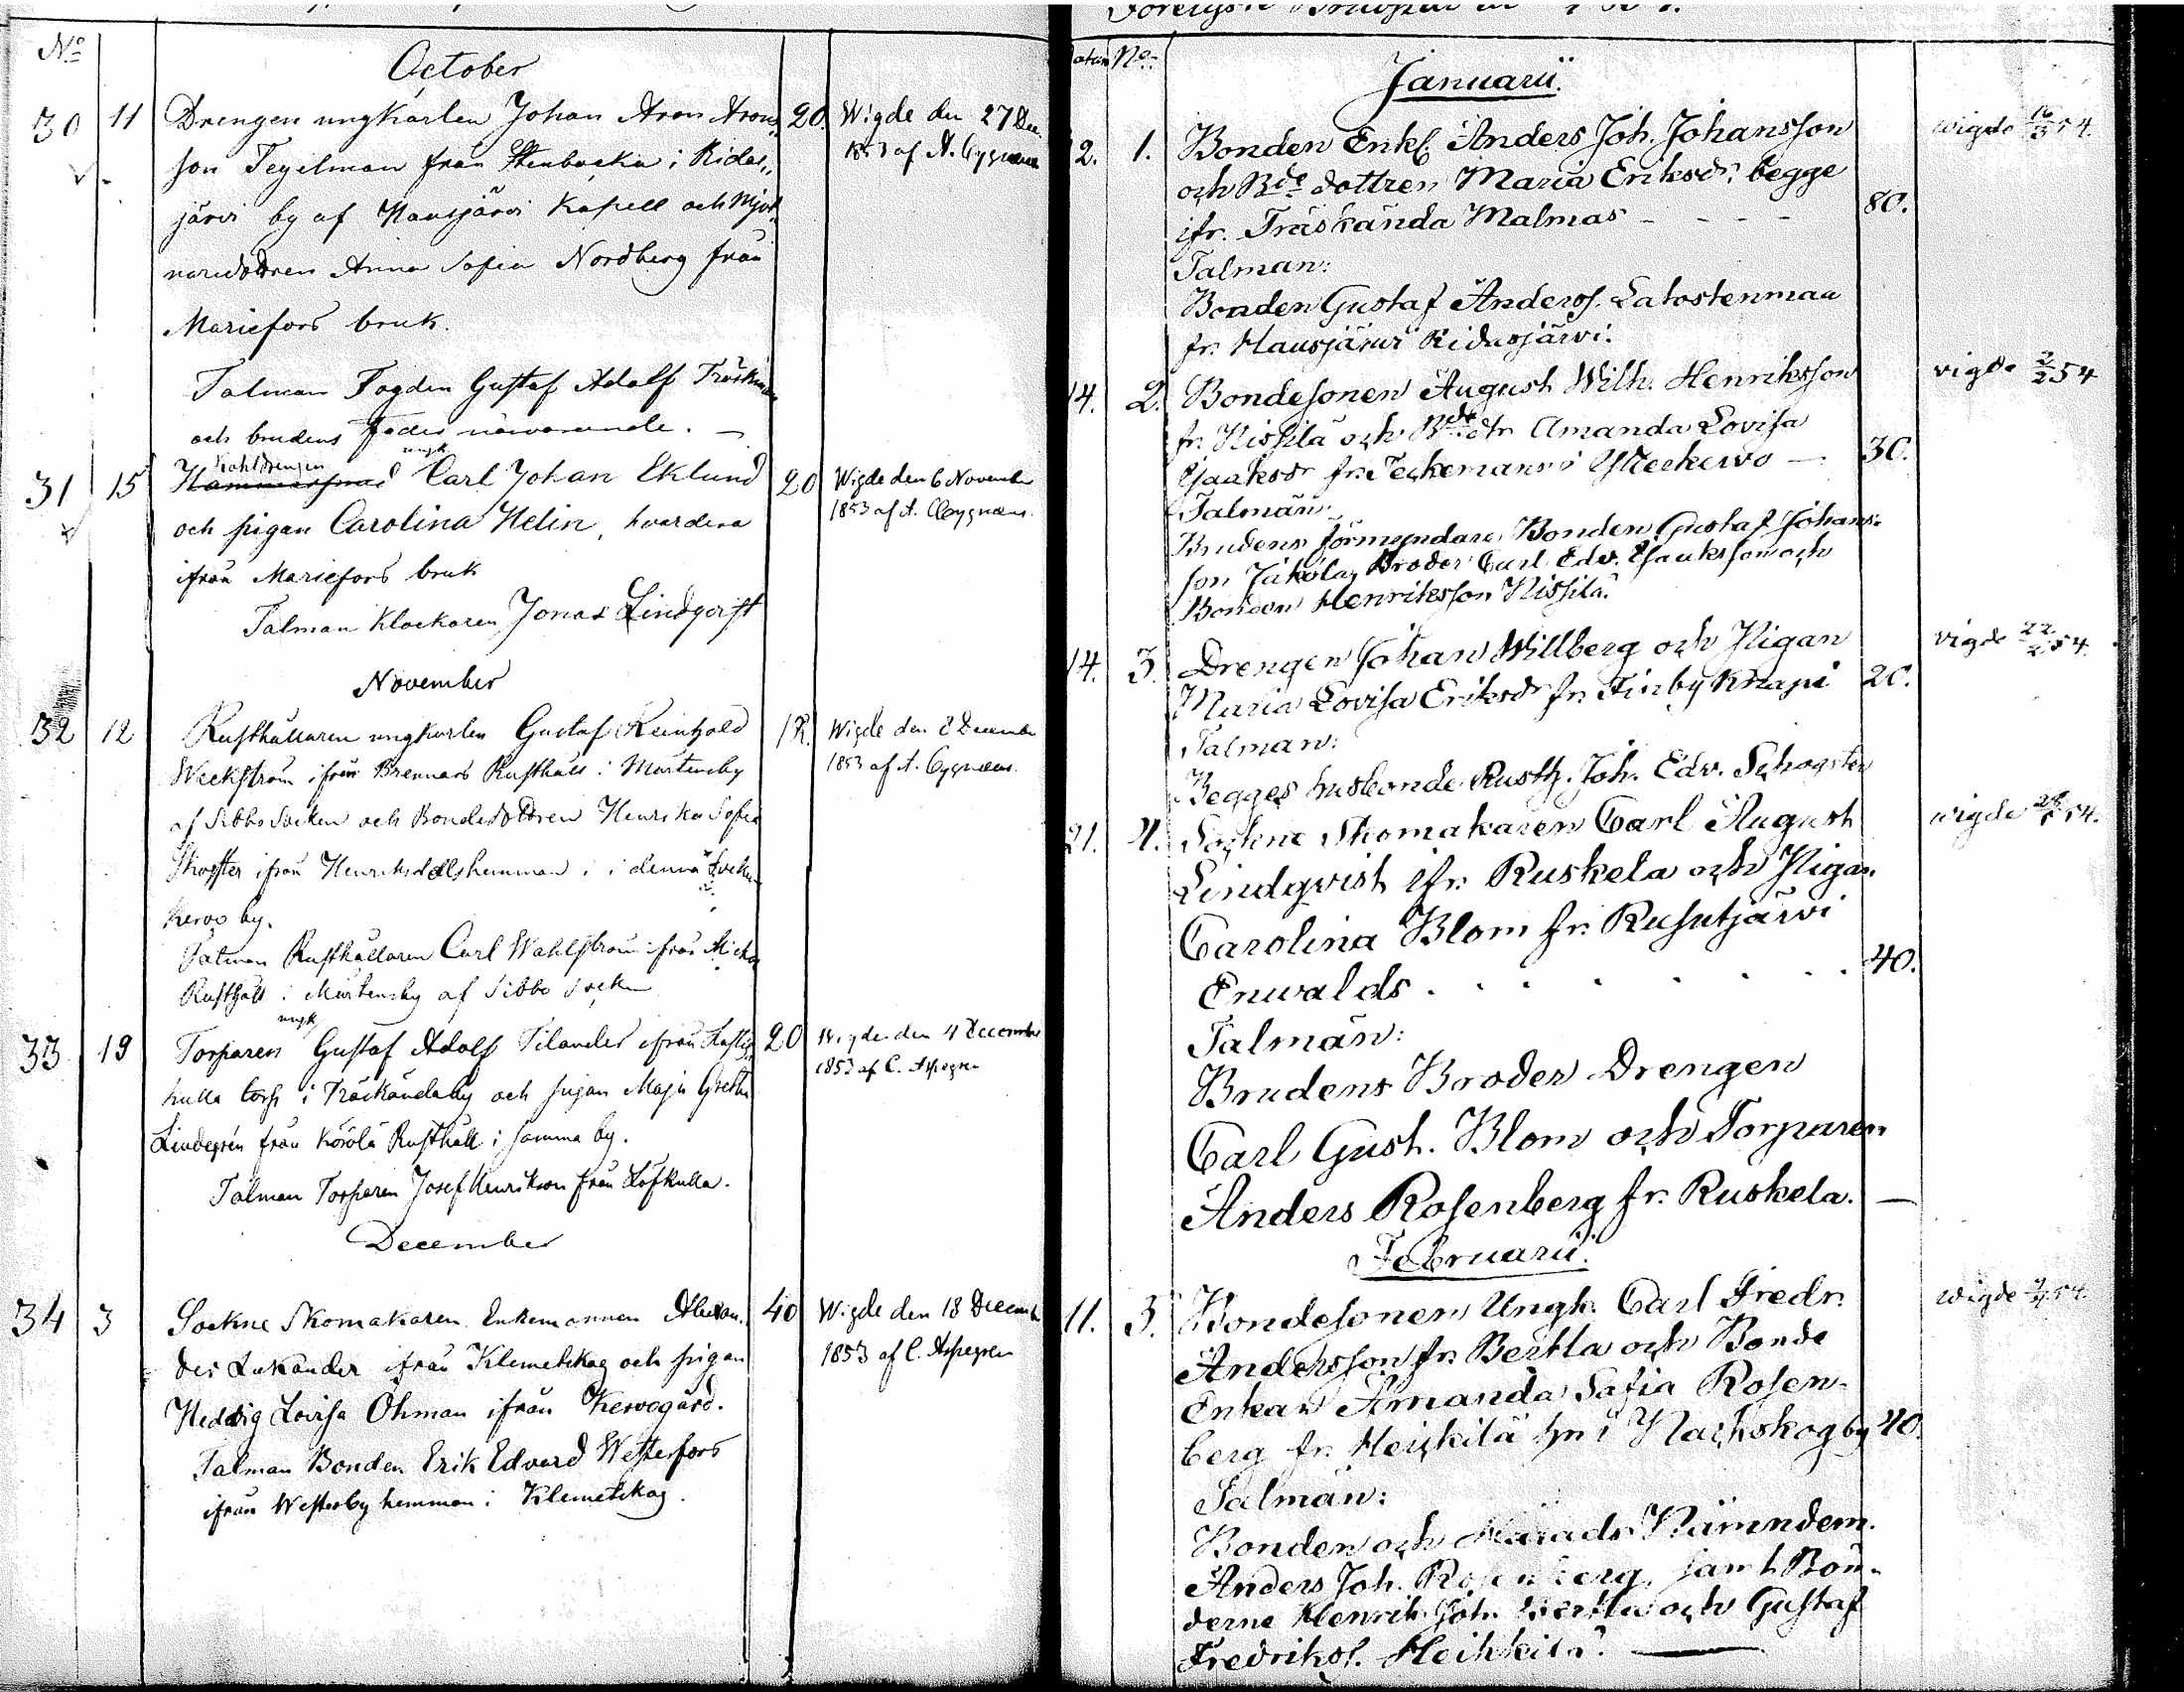 No
October
30 11 Drengen ungkarlen Johan Aron Arons- 20. Wigde den 27 Dec.
son Tegelman från Stenbacka i Ridas- 1853 af A. Cygnæus
järvi by af Hausjärvi Kapell och Mjöl-
naredottren Anna Sofia Nordberg från
Mariefors bruk.
Talman Fogden Gustaf Adolf Träskman
och brudens Fader närvarande. —
Kohldrengen ungk
31 15 Hammarsmed Carl Johan Eklund 20 Wigde den 6 November
och pigan Carolina Helin, hvardera 1853 af A. Cygnæus.
ifrån Mariefors bruk
Talman Klockaren Jonas Lindqvist
November
32 12 Rusthållaren ungkarlen Gustaf Reinhold 1 R. Wigde den 8 December
Weckström ifrån Brennars Rusthåll i Mårtensby 1853 af A. Cygnæus.
af Sibbo Socken och Bondedottren Henrika Sofia
ifrån Henriksdals hemman i denna Socken
Kervo by.
Talman Rusthållaren Carl Wahlström ifrån
Rusthåll i Mårtensby af Sibbo Socken
ungk
33 19 Torparen Gustaf Adolf Silander ifrån 20 Wigde den 4 December
kulla torp i Träskända by och pigan Maja Greta 1853 af C. Aspegren
Lindegrén från Körölä Rusthåll i samma by.
Talman Torparen Josef Henrikson från Löfkulla.
December
34 3 Sockne Skomakaren Enkemannen Alexan- 40 Wigde den 18 Decemb
der Lukander ifrån Klemetskog och pigan 1853 af C. Aspegren
Hedvig Lovisa Öhman ifrån Kervogård.
Talman Bonden Erik Edvard Westerfors
ifrån Westerby hemman i Klemetskog.
Datum No
Januarii.
12. 1. Bonden Enkl. Anders Joh. Johansson wigde 16/3 54.
och Bde dottren Maria Eriksdr, begge
ifr. Träskända Malmas - - - - 80.
Talman:
Bonden Gustaf Anders. Latostenmaa
fr. Hausjärvi Ridasjärvi.
14. 2. Bondesonen August Wilh. Henriksson vigde 2/2 54
fr. Nissilä och Bde dtr Amanda Lovisa
Isaksdr fr. Teckemans i Ytterkervo — 30.
Talmän:
Brudens förmyndare Bonden Gustaf Johans-
son Jäkölä, Broder Carl Edv. Isaksson och
Bonden Henriksson Nissilä.
14. 3. Drengen Johan Willberg och Pigan vigde 22/2 54.
Maria Lovisa Eriksdr fr. Finby Knapi 20.
Talman:
Begges husbonde Rusth. Joh. Edv. Schogster
21. 4. Sockne Skomakaren Carl August wigde
Lindqvist ifr. Ruskela och Pigan
Carolina Blom fr. Rusutjärvi
Enwalds . . . . . . . 40.
Talmän:
Brudens Broder Drengen
Carl Gust. Blom och Torparen
Anders Rosenberg fr. Ruskela. —
Februarii.
11. 5. Bondesonen Ungk. Carl Fredr. wigde
Andersson fr. Bertla och Bonde
Enkan Amanda Sofia Rosen-
berg fr. Heickilä hn i Nackskog by 40.
Talmän:
Bonden och Härads Nämndem.
Anders Joh. Rosenberg, samt Bön-
derne Henrik Joh. Bertla och Gustaf
Fredriks. Heikkilä. —